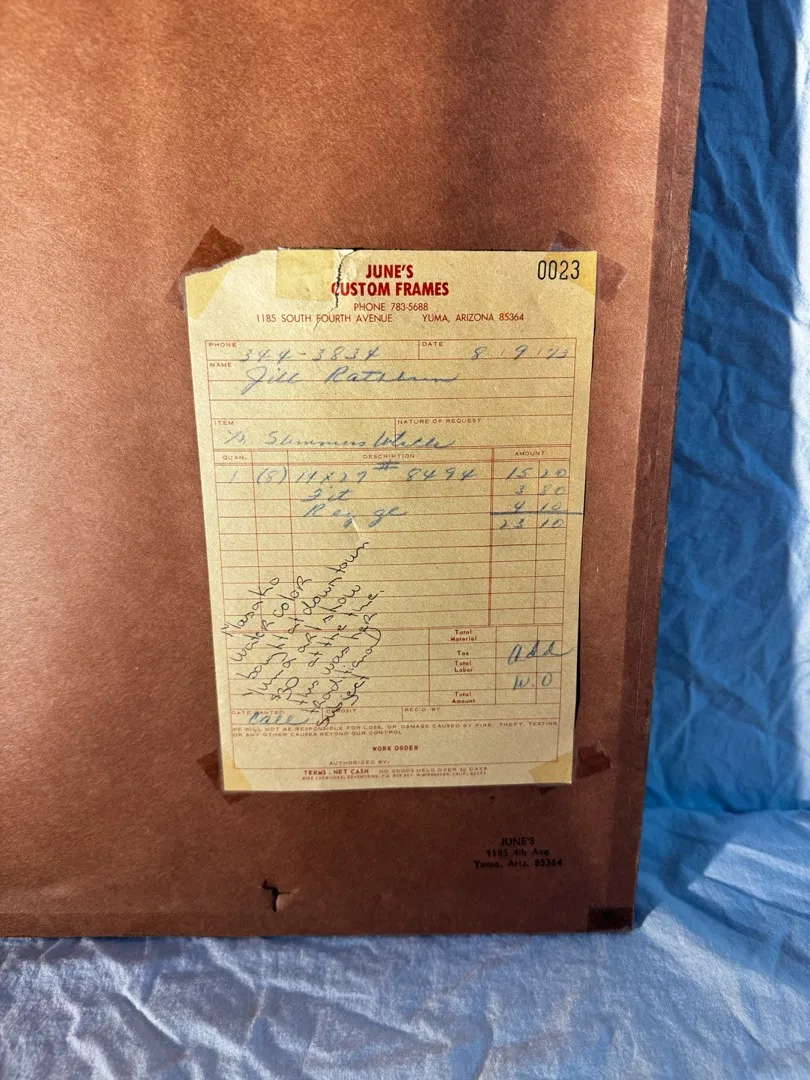 JUNE'S
CUSTOM FRAMES
0023
PHONE 783-5688
1185 SOUTH FOURTH AVENUE YUMA, ARIZONA 85364
PHONE 344-3834 DATE 8 9 73
NAME Jill Rathbun
ITEM NATURE OF REQUEST
Summers
QUAN. DESCRIPTION AMOUNT
1 (8) 14 x 27 # 8494 15 20
Fit 3 80
4 10
23 10
Masako
water color
bought at downtown
Yuma art show
$30 at the time.
this was her
traditional
subject
Total Material
Tax
Total Labor
Total Amount
Add
W.O
DATE WANTED DEPOSIT REC'D BY
Call
WE WILL NOT BE RESPONSIBLE FOR LOSS, OR DAMAGE CAUSED BY FIRE, THEFT, TESTING
OR ANY OTHER CAUSES BEYOND OUR CONTROL
WORK ORDER
AUTHORIZED BY:
TERMS: NET CASH NO GOODS HELD OVER 30 DAYS
JUNE'S
1185 4th Ave
Yuma, Ariz. 85364